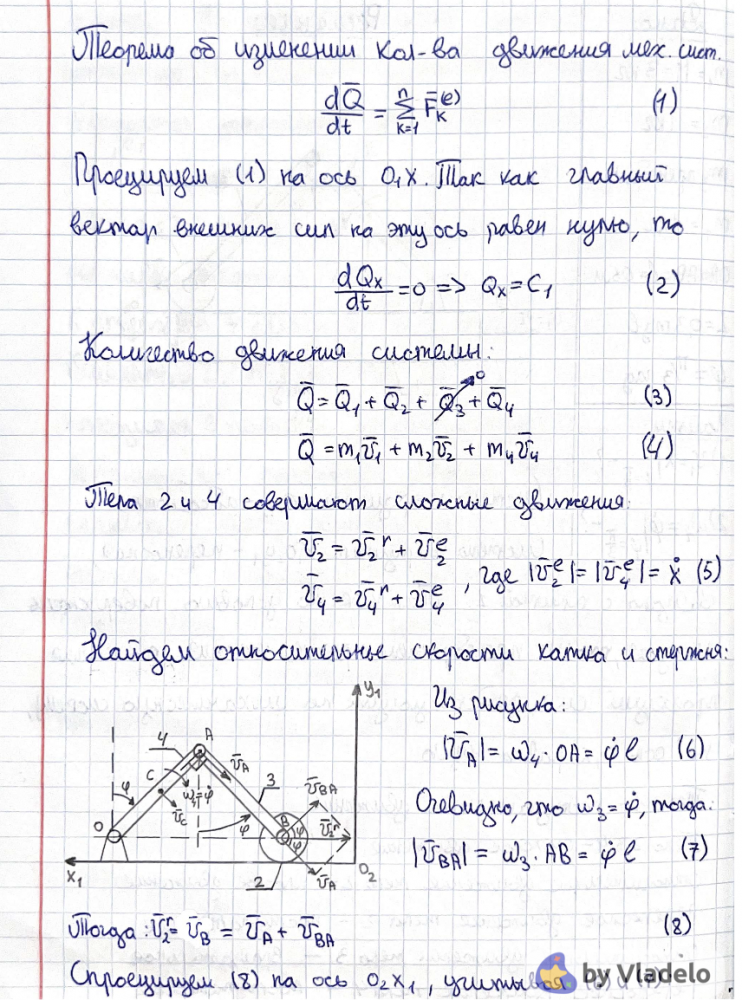 Теорема об изменении кол-ва движения мех. сист.
dQ̄/dt = Σ_{k=1}^{n} F̄_k^{(e)} (1)
Проецируем (1) на ось O₁x. Так как главный
вектор внешних сил на эту ось равен нулю, то
dQₓ/dt = 0 => Qₓ = C₁ (2)
Количество движения системы:
Q̄ = Q̄₁ + Q̄₂ + Q̄₃ + Q̄₄ 0 (3)
Q̄ = m₁v̄₁ + m₂v̄₂ + m₄v̄₄ (4)
Тела 2 и 4 совершают сложные движения:
v̄₂ = v̄₂ʳ + v̄₂ᵉ
v̄₄ = v̄₄ʳ + v̄₄ᵉ, где |v̄₂ᵉ| = |v̄₄ᵉ| = ẋ (5)
Найдем относительные скорости катка и стержня:
y₁
Из рисунка:
4 A
|v̄_A| = ω₄ · OA = φ̇ l (6)
C v̄_A 3 v̄_BA
φ ω₄=φ̇
Очевидно, что ω₃ = φ̇, тогда:
O v̄_C φ B φ φ v̄₂ʳ
|v̄_BA| = ω₃ · AB = φ̇ l (7)
x₁ 2 v̄_A O₂
Тогда: v̄₂ʳ = v̄_B = v̄_A + v̄_BA (8)
Спроецируем (8) на ось O₂x₁, учитывая
by Vladelo